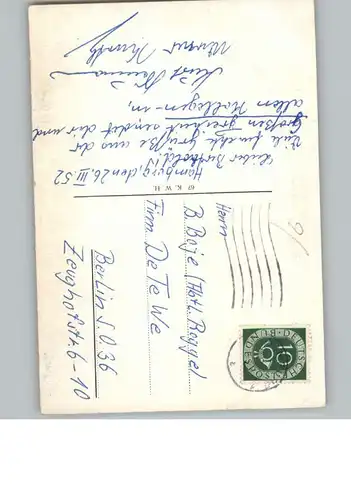 Hamburg, den 26.III.52
Lieber Berthold!
Viele feuchte Grüße aus der
großen Freiheit sendet dir und
allen Kollegen-in,
Horst
Werner
67 K. W. H.
Herrn
B. Boje (Abtl. Roggel)
Firm De Te We
Berlin S.O 36
Zeughofstr. 6-10
DEUTSCHE BUNDESPOST
10